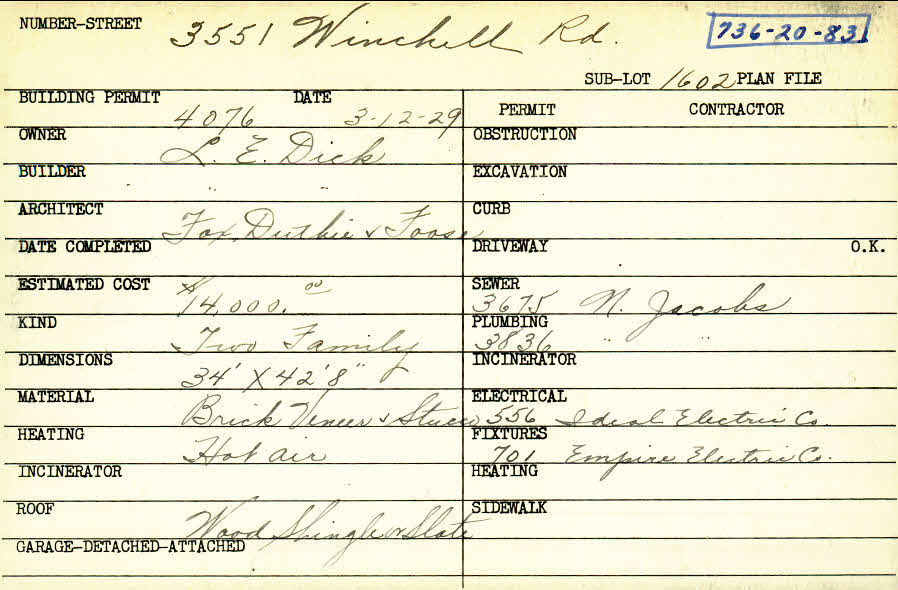 NUMBER-STREET 3551 Winchell Rd. 736-20-83
SUB-LOT 1602 PLAN FILE
BUILDING PERMIT 4076 DATE 3-12-29
PERMIT CONTRACTOR
OWNER L. E. Dick
OBSTRUCTION
BUILDER " "
EXCAVATION
ARCHITECT Fox, Duthie & Foose
CURB
DATE COMPLETED
DRIVEWAY O.K.
ESTIMATED COST $14,000.00
SEWER 3675 N. Jacobs
KIND Two Family
PLUMBING 3836 " "
DIMENSIONS 34' X 42'8"
INCINERATOR
MATERIAL Brick Veneer & Stucco
ELECTRICAL 556 Ideal Electric Co.
HEATING Hot air
FIXTURES 701 Empire Electric Co.
INCINERATOR
HEATING
ROOF Wood Shingle or Slate
SIDEWALK
GARAGE-DETACHED-ATTACHED